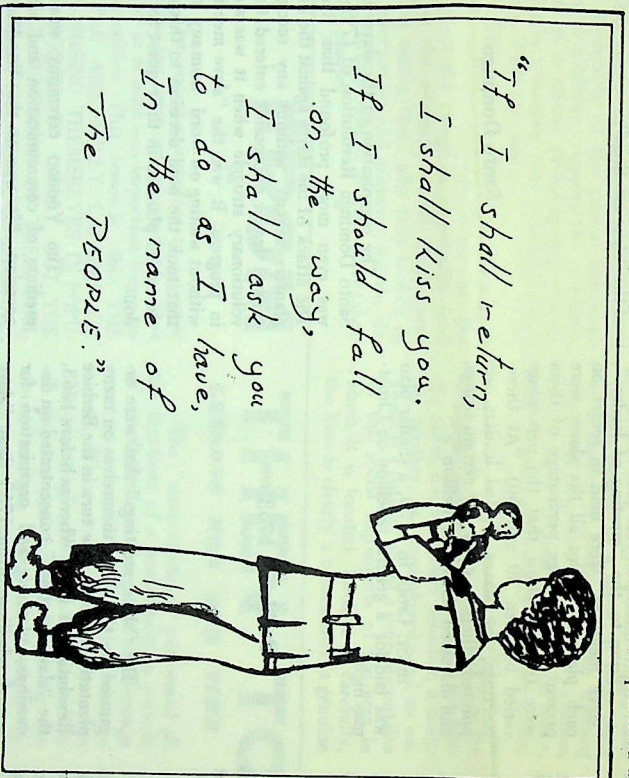 "If I shall return,
I shall kiss you.
If I should fall
on the way,
I shall ask you
to do as I have,
In the name of
The PEOPLE."